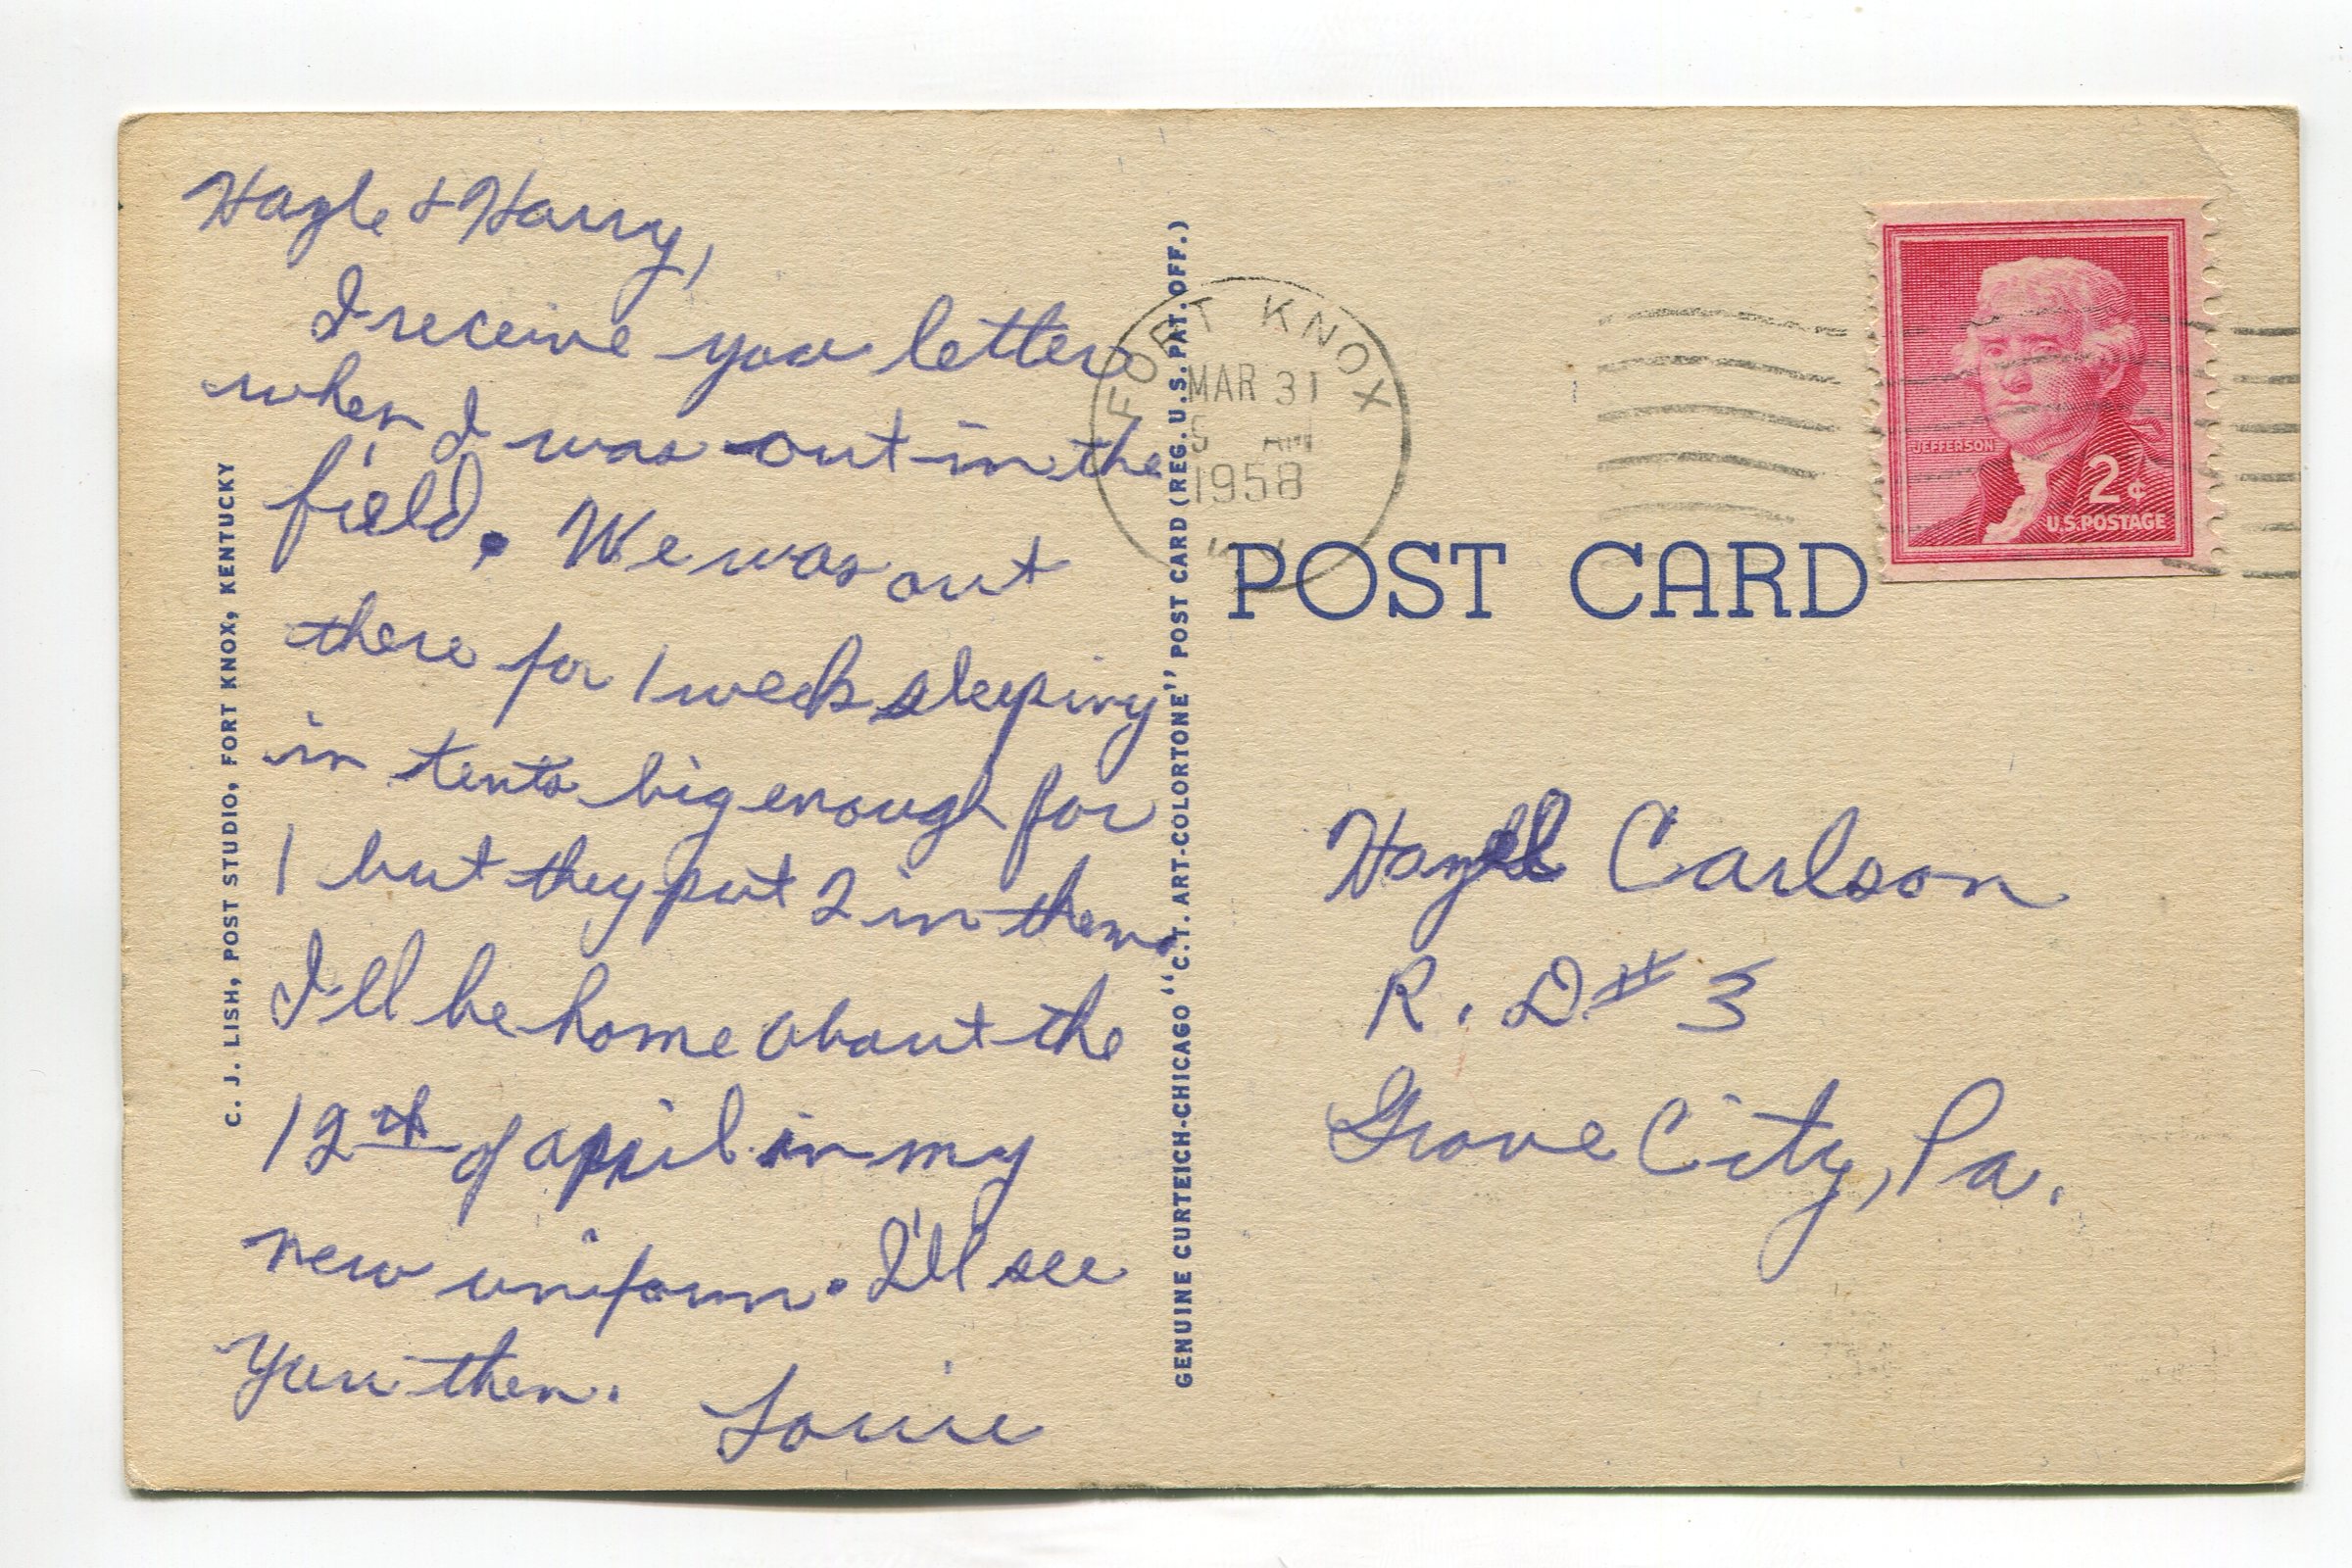 Hazle & Harry,
I receive you letter
when I was out in the
field. We was out
there for 1 week sleeping
in tents big enough for
1 but they put 2 in them.
I'll be home about the
12th of april in my
new uniform. I'll see
you then.
Louie
C. J. LISH, POST STUDIO, FORT KNOX, KENTUCKY
GENUINE CURTEICH-CHICAGO "C.T. ART-COLORTONE" POST CARD (REG. U.S. PAT. OFF.)
FORT KNOX
MAR 31
5 AM
1958
JEFFERSON
2¢
U.S. POSTAGE
POST CARD
Hazel Carlson
R. D # 3
Grove City, Pa.